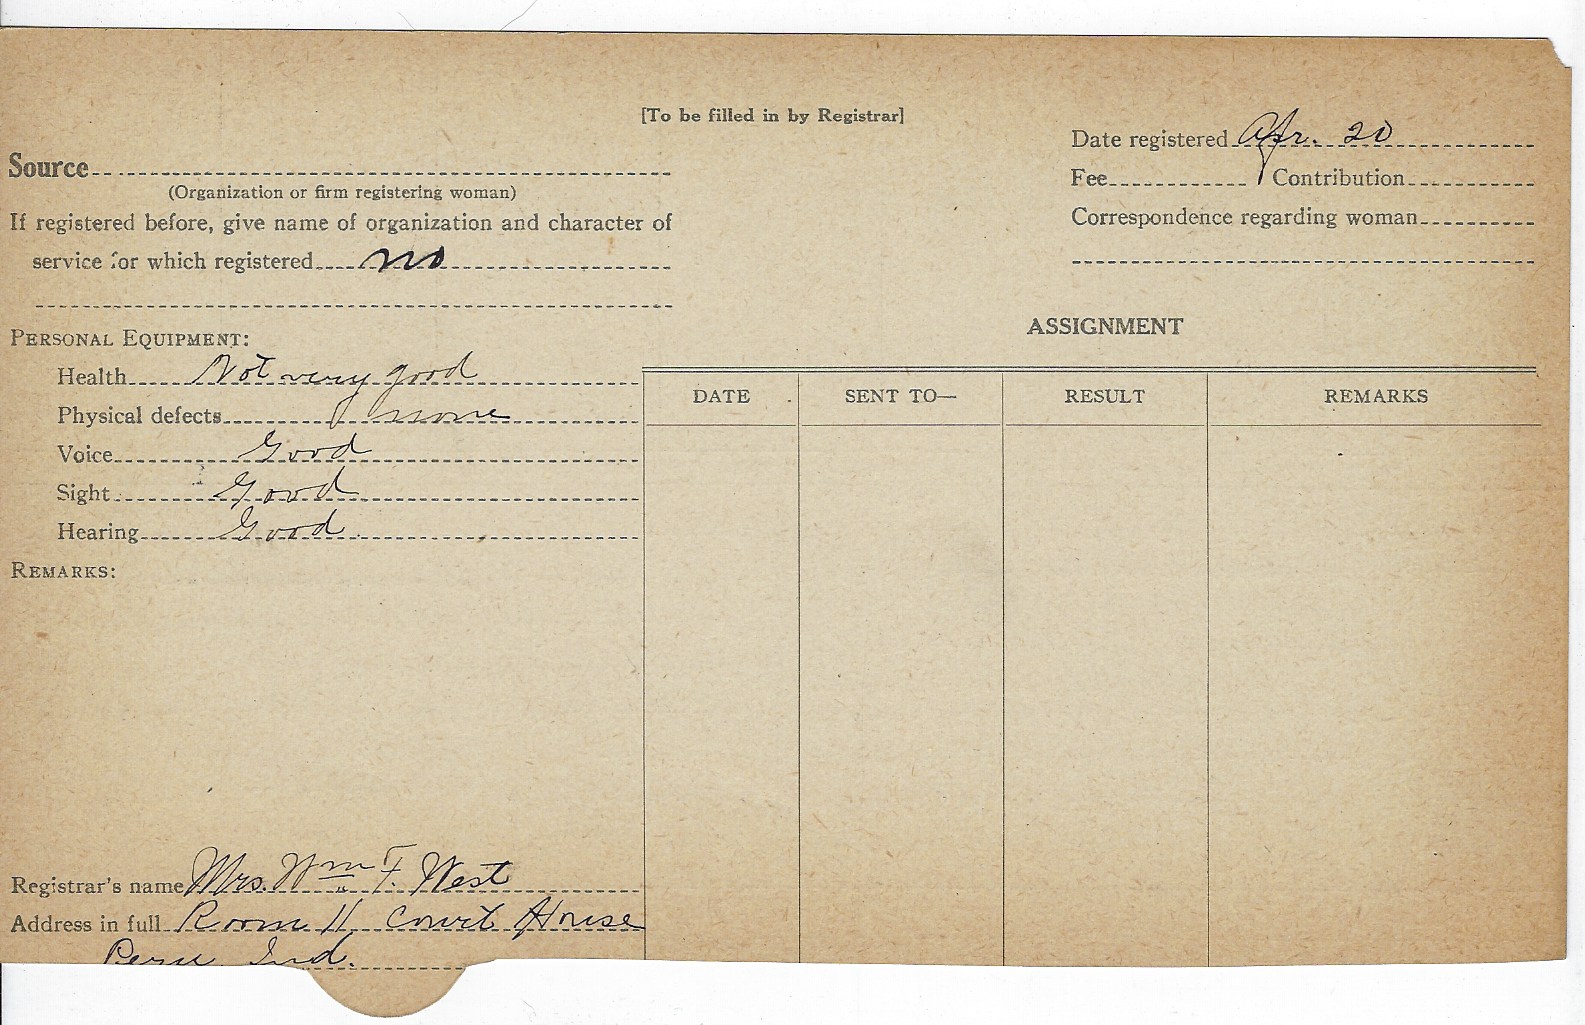 [To be filled in by Registrar]
Date registered Apr. 20
Source
(Organization or firm registering woman)
Fee Contribution
If registered before, give name of organization and character of
Correspondence regarding woman
service for which registered no
PERSONAL EQUIPMENT:
ASSIGNMENT
Health Not very good
DATE SENT TO— RESULT REMARKS
Physical defects none
Voice Good
Sight Good
Hearing Good.
REMARKS:
Registrar's name Mrs. Wm F. West
Address in full Room 11 Court House
Peru Ind.